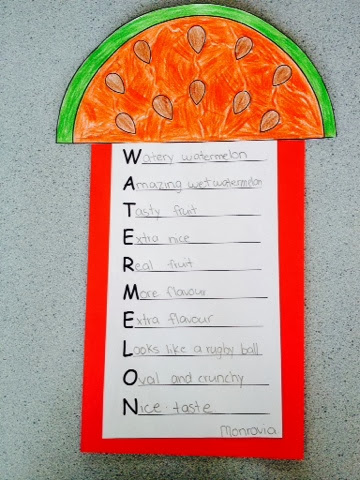 Watery watermelon
Amazing wet watermelon
Tasty fruit
Extra nice
Real fruit
More flavour
Extra flavour
Looks like a rugby ball
Oval and crunchy
Nice taste
Monrovia